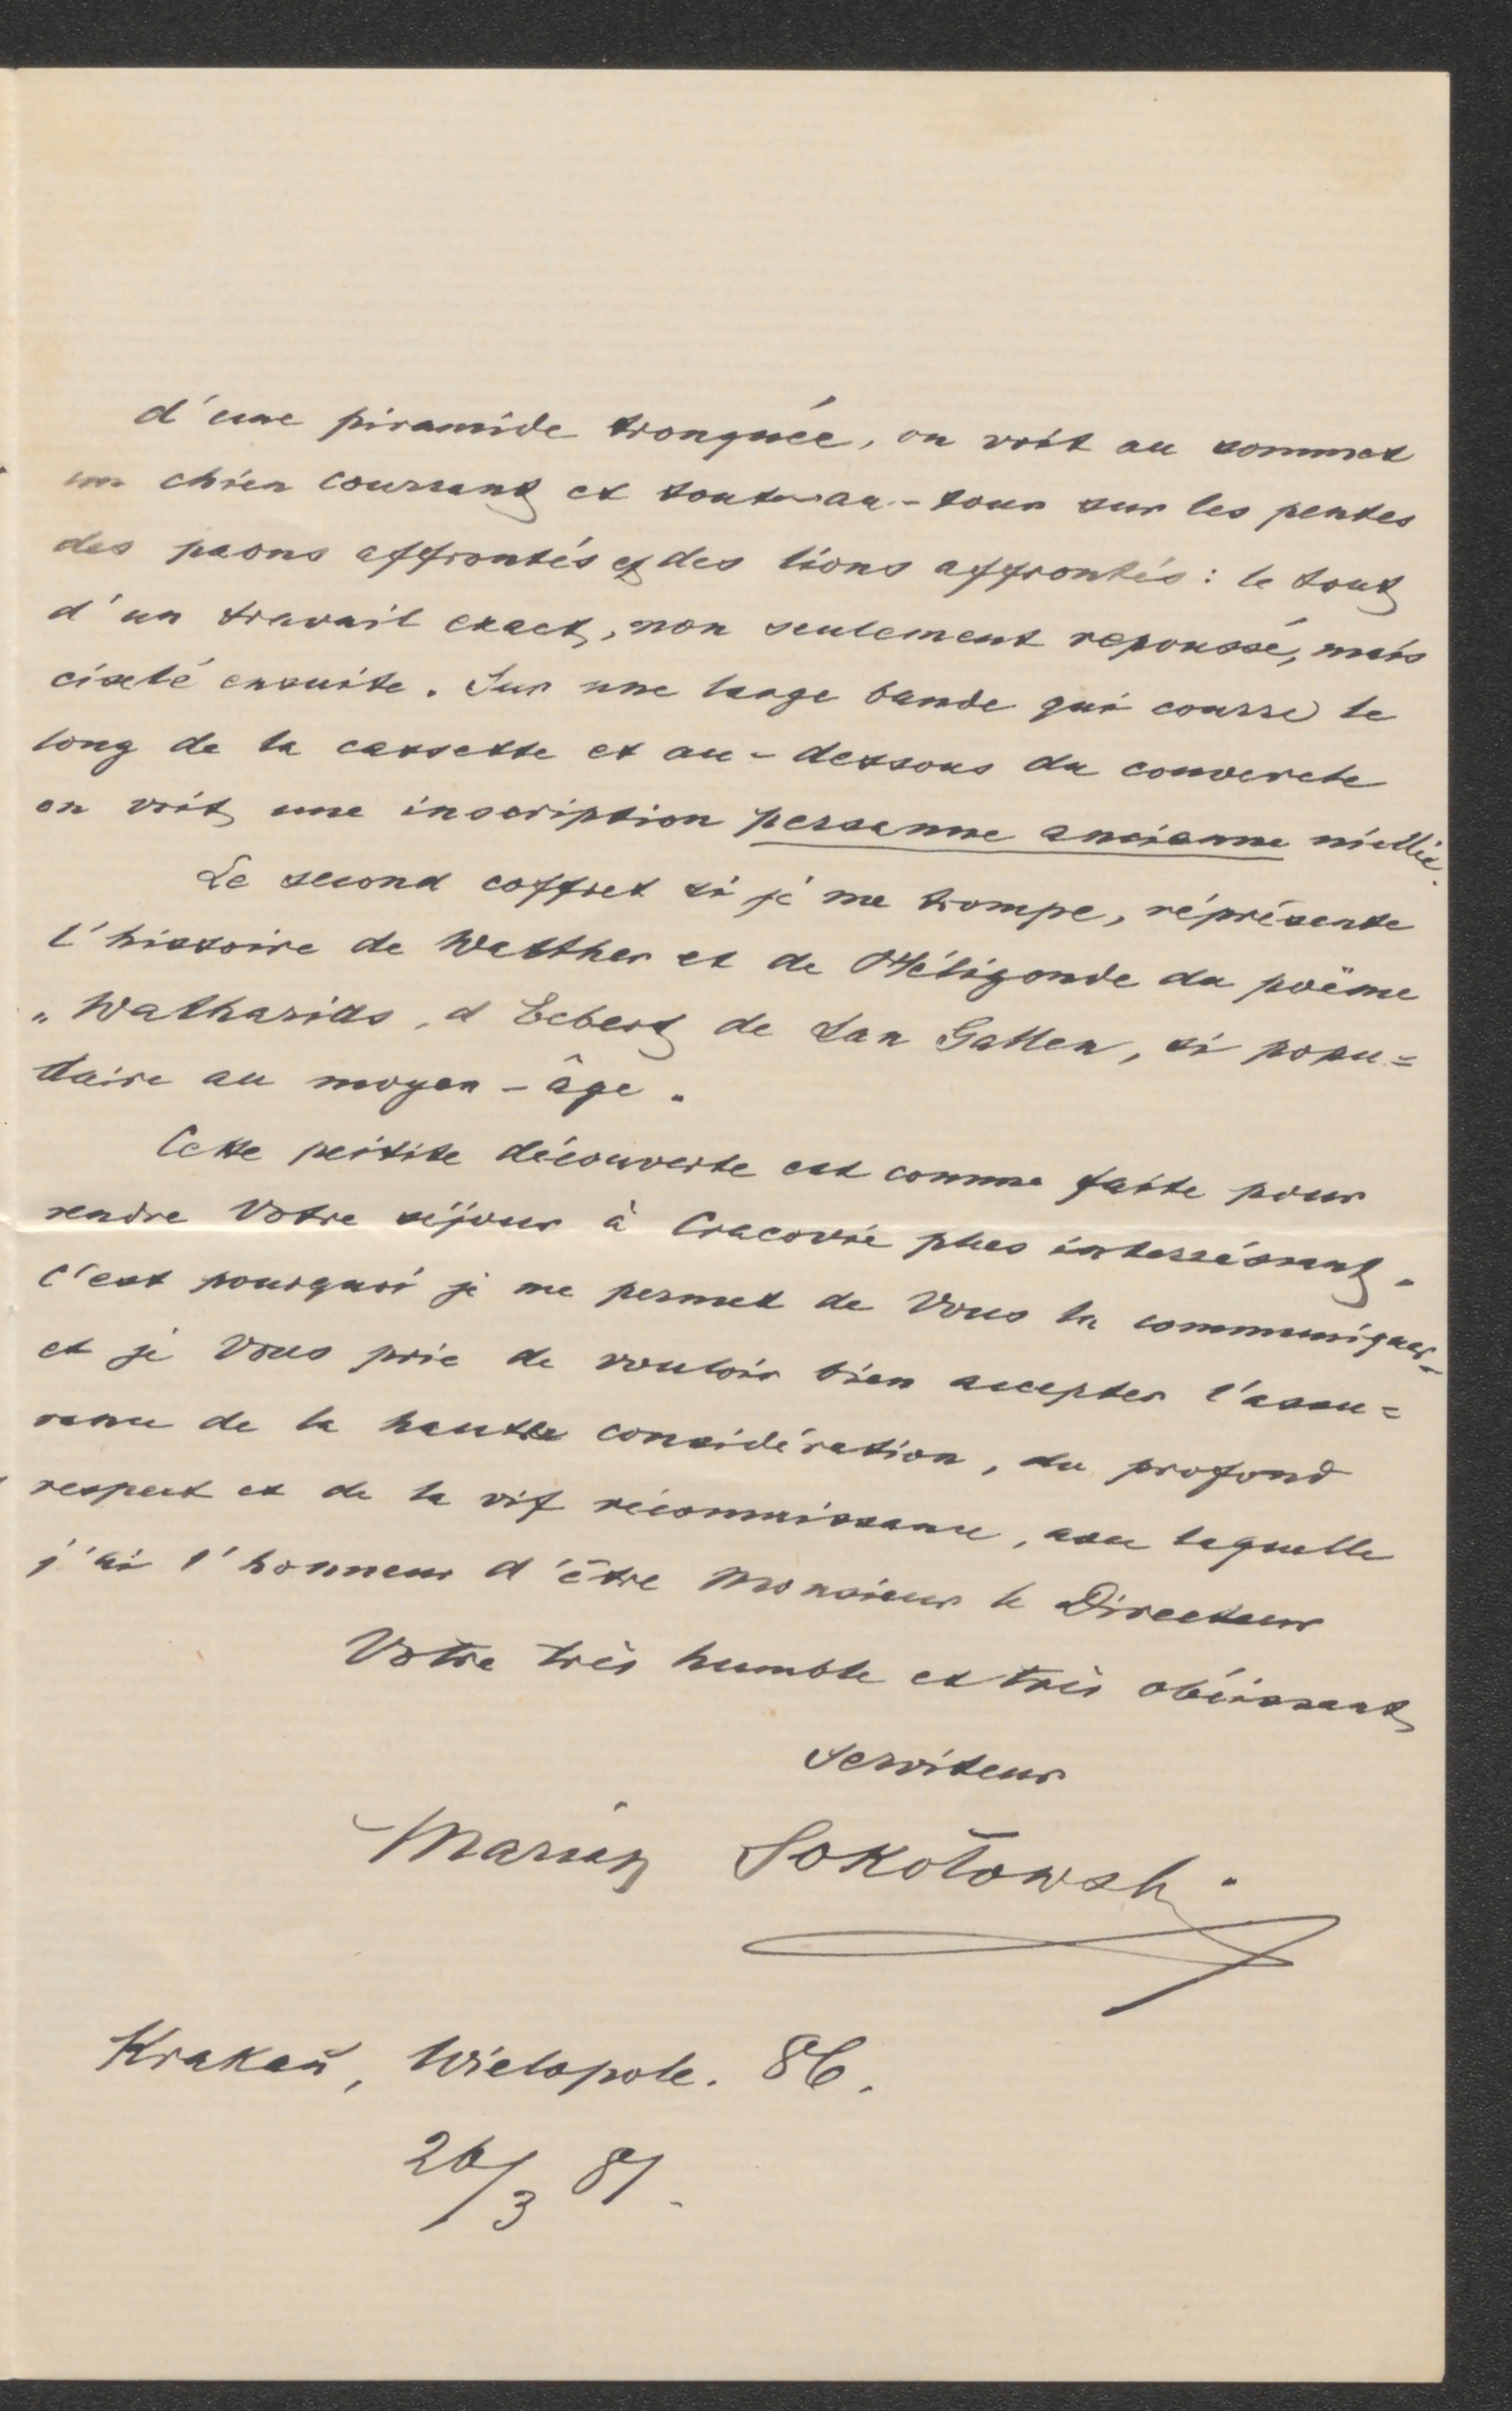 d'une piramide tronquée, on voit au sommet
un chien courrant et tout-au-tour sur les pentes
des paons affrontés et des lions affrontés: le tout
d'un travail exact, non seulement repoussé, mais
ciselé ensuite. Sur une large bande qui courre le
long de la cassette et au-dessous du couvercle
on voit une inscription persanne ancianne niellée.
Le second coffret si je me trompe, réprésente
l'histoire de Walther et de Héligonde du poëme
„Waltharius, d'Eckert de San Gallen, si popu=
laire au moyen-âge.
Cette petite découverte est comme faite pour
rendre Votre séjour à Cracovie plus interréssant.
C'est pourquoi je me permet de Vous la communiquer
et je Vous prie de vouloir bien accepter l'assu=
rance de la haute considération, du profond
respect et de la vif réconnaissance, avec laquelle
j'ai l'honneur d'être Monsieur le Directeur
Votre très humble et très obéissant
serviteur
Marian Sokołowski.
Krakaŭ, Wielopole. 86.
26/3 81.